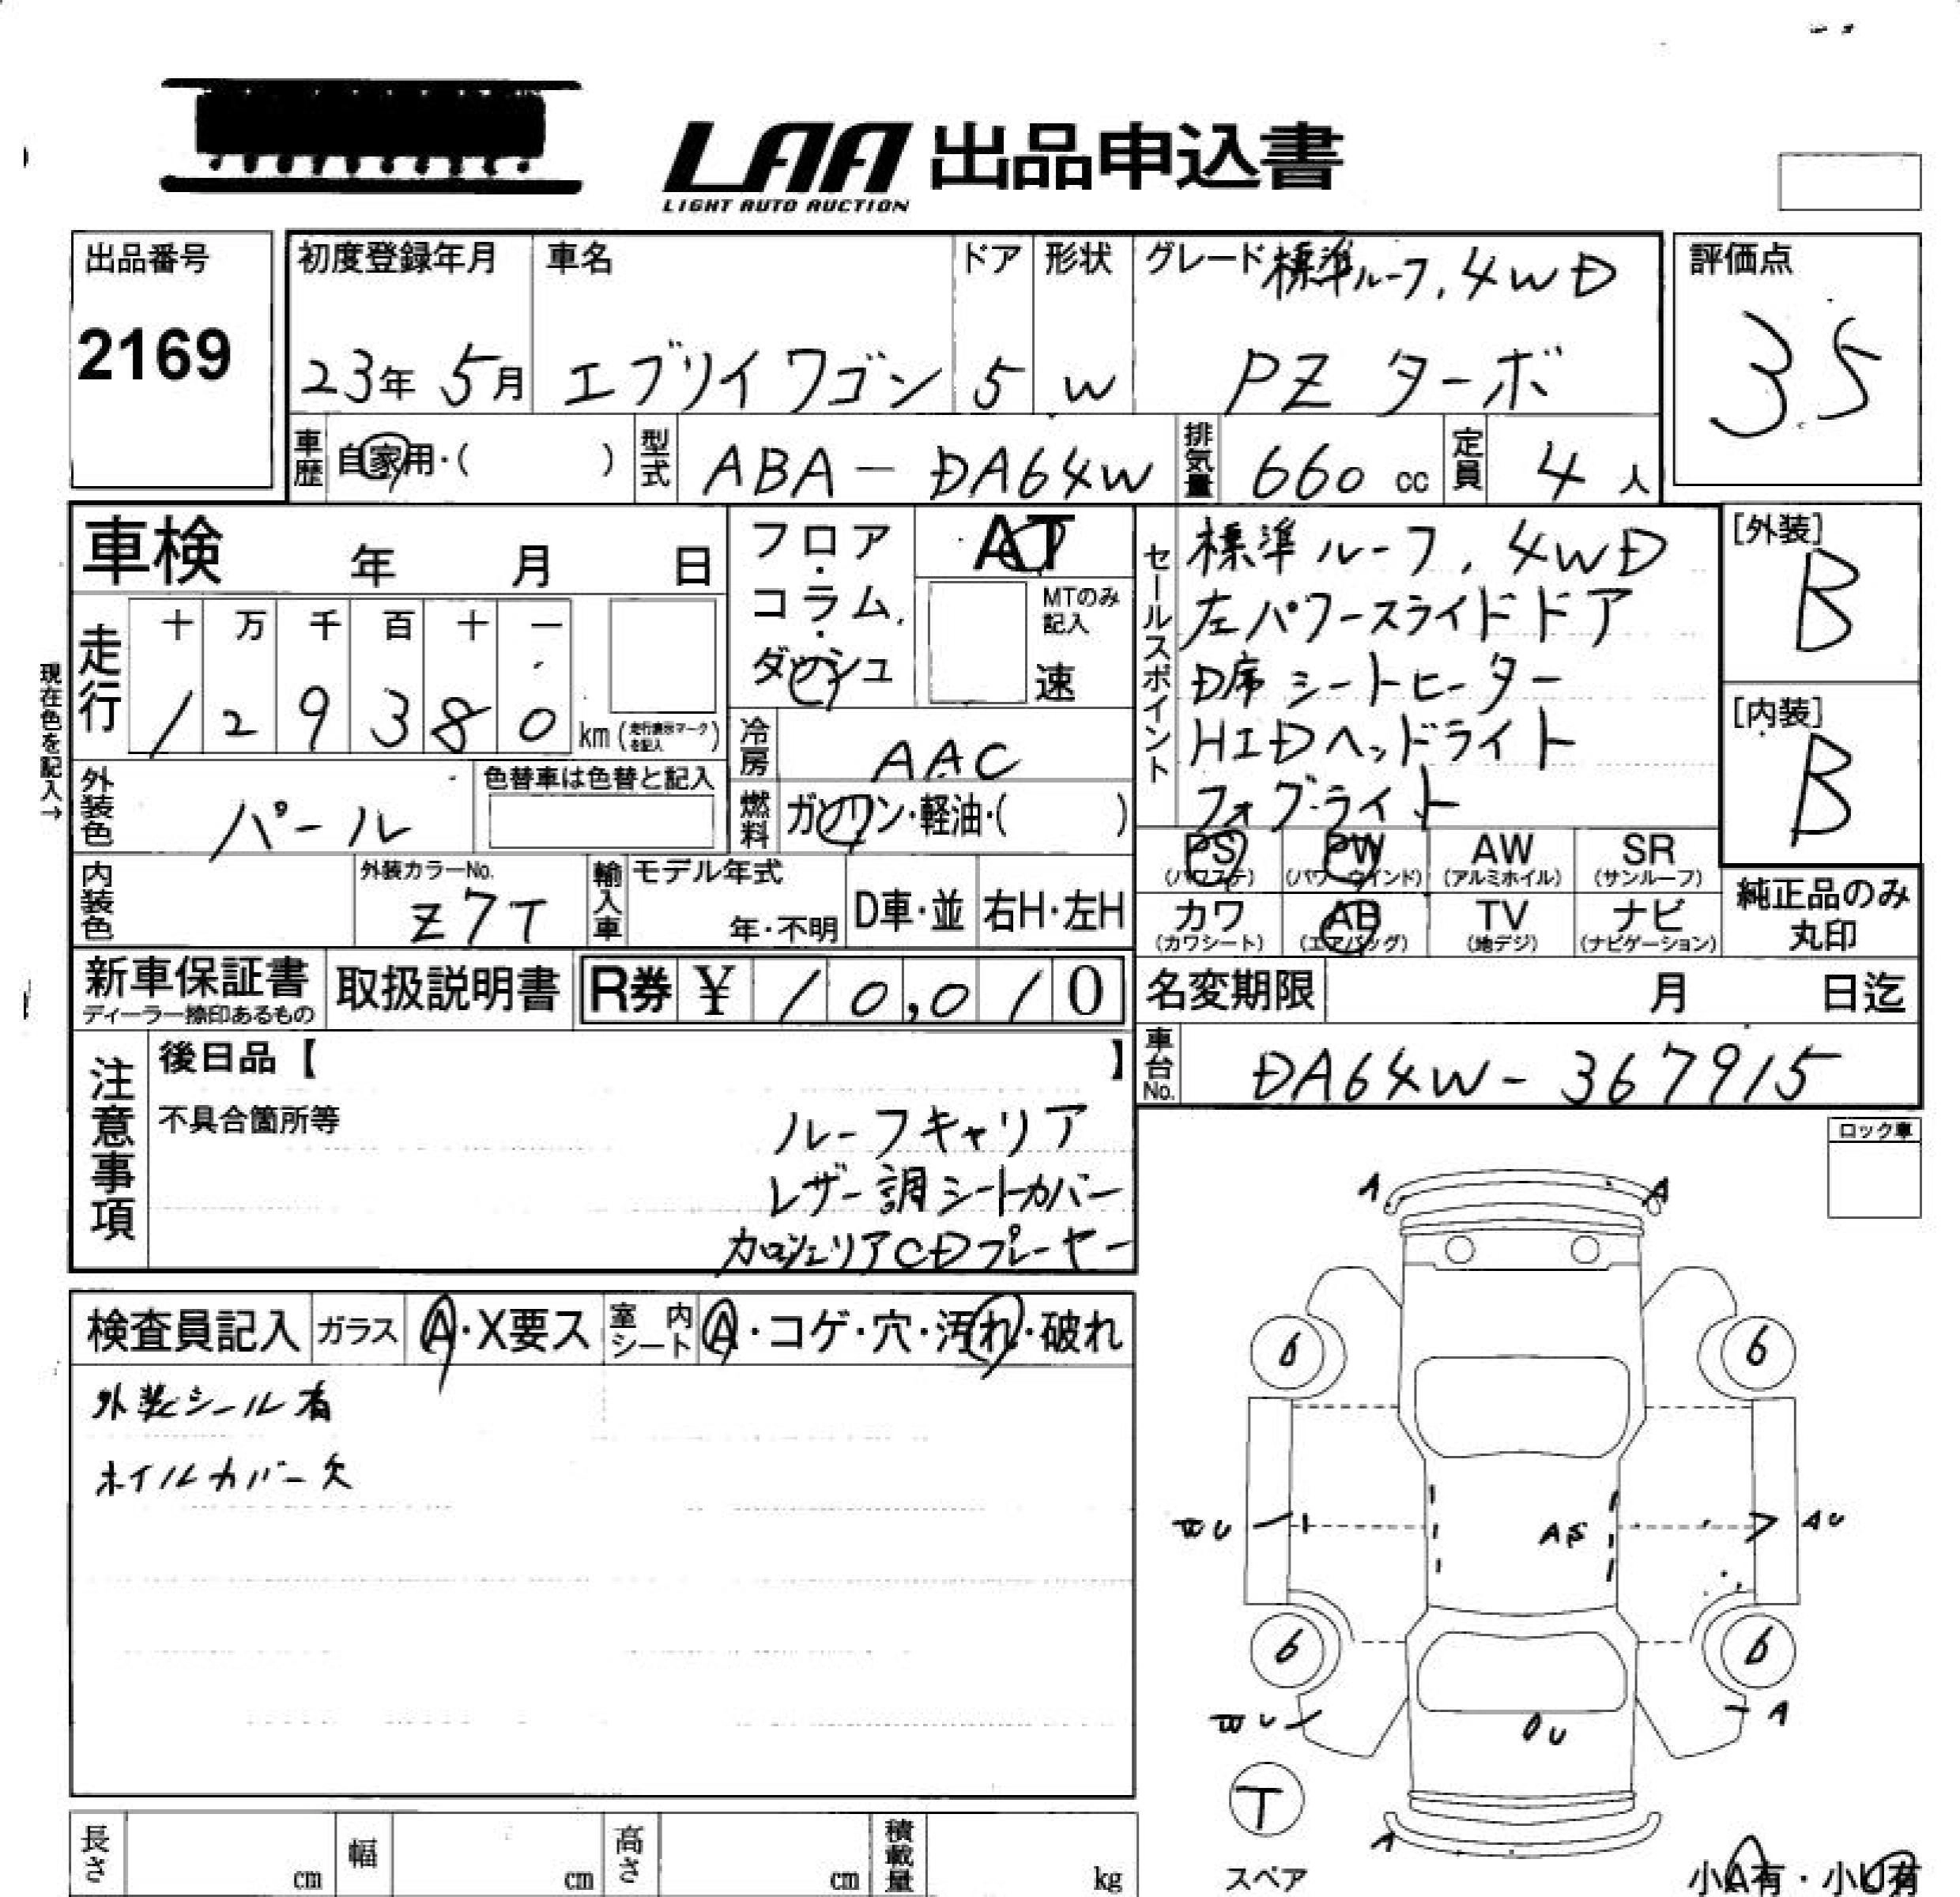 LAA 出品申込書
LIGHT AUTO AUCTION
出品番号
2169
初度登録年月
23年 5月
車名
エブリイワゴン
ドア
5
形状
W
グレード 標準ルーフ、4WD
PZ ターボ
評価点
3.5
車歴 自家用・( )
型式 ABA-DA64W
排気量 660 cc
定員 4 人
車検 年 月 日
フロア・コラム・ダッシュ
AT
MTのみ記入
速
セールスポイント
標準ルーフ、4WD
左パワースライドドア
D席シートヒーター
HIDヘッドライト
フォグライト
[外装]
B
[内装]
B
現在色を記入→
走行
十 万 千 百 十 一
1 2 9 3 8 0 km (走行表示マークを記入)
冷房 AAC
外装色 パール
色替車は色替と記入
燃料 ガソリン・軽油・( )
PS (パワステ)
PW (パワーウインド)
AW (アルミホイル)
SR (サンルーフ)
カワ (カワシート)
AB (エアバッグ)
TV (地デジ)
ナビ (ナビゲーション)
純正品のみ
丸印
内装色
外装カラーNo.
Z7T
輸入車 モデル年式
年・不明
D車・並 右H・左H
新車保証書
ディーラー捺印あるもの
取扱説明書
R券 ¥ 10,010
名変期限 月 日迄
車台No. DA64W-367915
注意事項
後日品【 】
不具合箇所等
ルーフキャリア
レザー調シートカバー
カロッツェリアCDプレーヤー
ロック車
検査員記入 ガラス A・X要ス 室内シート A・コゲ・穴・汚れ・破れ
外装シール有
ホイルカバー欠
A A
6 6
AU
6 6
A
T
スペア
A
小A有・小U有
長さ cm 幅 cm 高さ cm 積載量 kg